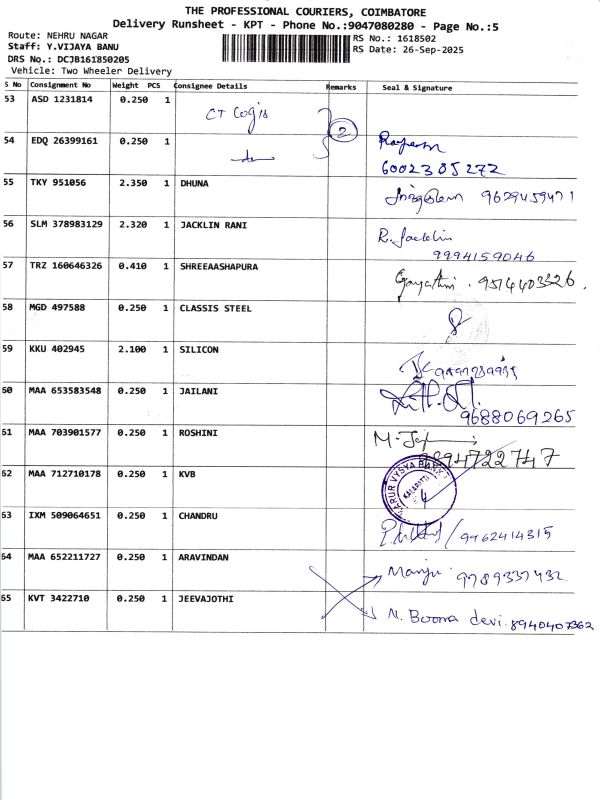 THE PROFESSIONAL COURIERS, COIMBATORE
Delivery Runsheet - KPT - Phone No.:9047080280 - Page No.:5
Route: NEHRU NAGAR
Staff: Y.VIJAYA BANU
DRS No.: DCJB161850205
Vehicle: Two Wheeler Delivery
RS No.: 1618502
RS Date: 26-Sep-2025
S No Consignment No Weight PCS Consignee Details Remarks Seal & Signature
53 ASD 1231814 0.250 1 CT Cogis
2
54 EDQ 26399161 0.250 1
6002305272
55 TKY 951056 2.350 1 DHUNA 9629459471
56 SLM 378983129 2.320 1 JACKLIN RANI R. Jacklin
9994159046
57 TRZ 160646326 0.410 1 SHREEAASHAPURA Gayathri . 9514403326.
58 MGD 497588 0.250 1 CLASSIS STEEL
59 KKU 402945 2.100 1 SILICON
60 MAA 653583548 0.250 1 JAILANI
9688069265
61 MAA 703901577 0.250 1 ROSHINI
9894722747
62 MAA 712710178 0.250 1 KVB KARUR VYSYA BANK
63 IXM 509064651 0.250 1 CHANDRU 9962414315
64 MAA 652211727 0.250 1 ARAVINDAN Manju. 9789337432
65 KVT 3422710 0.250 1 JEEVAJOTHI N. Booma devi. 8940407362